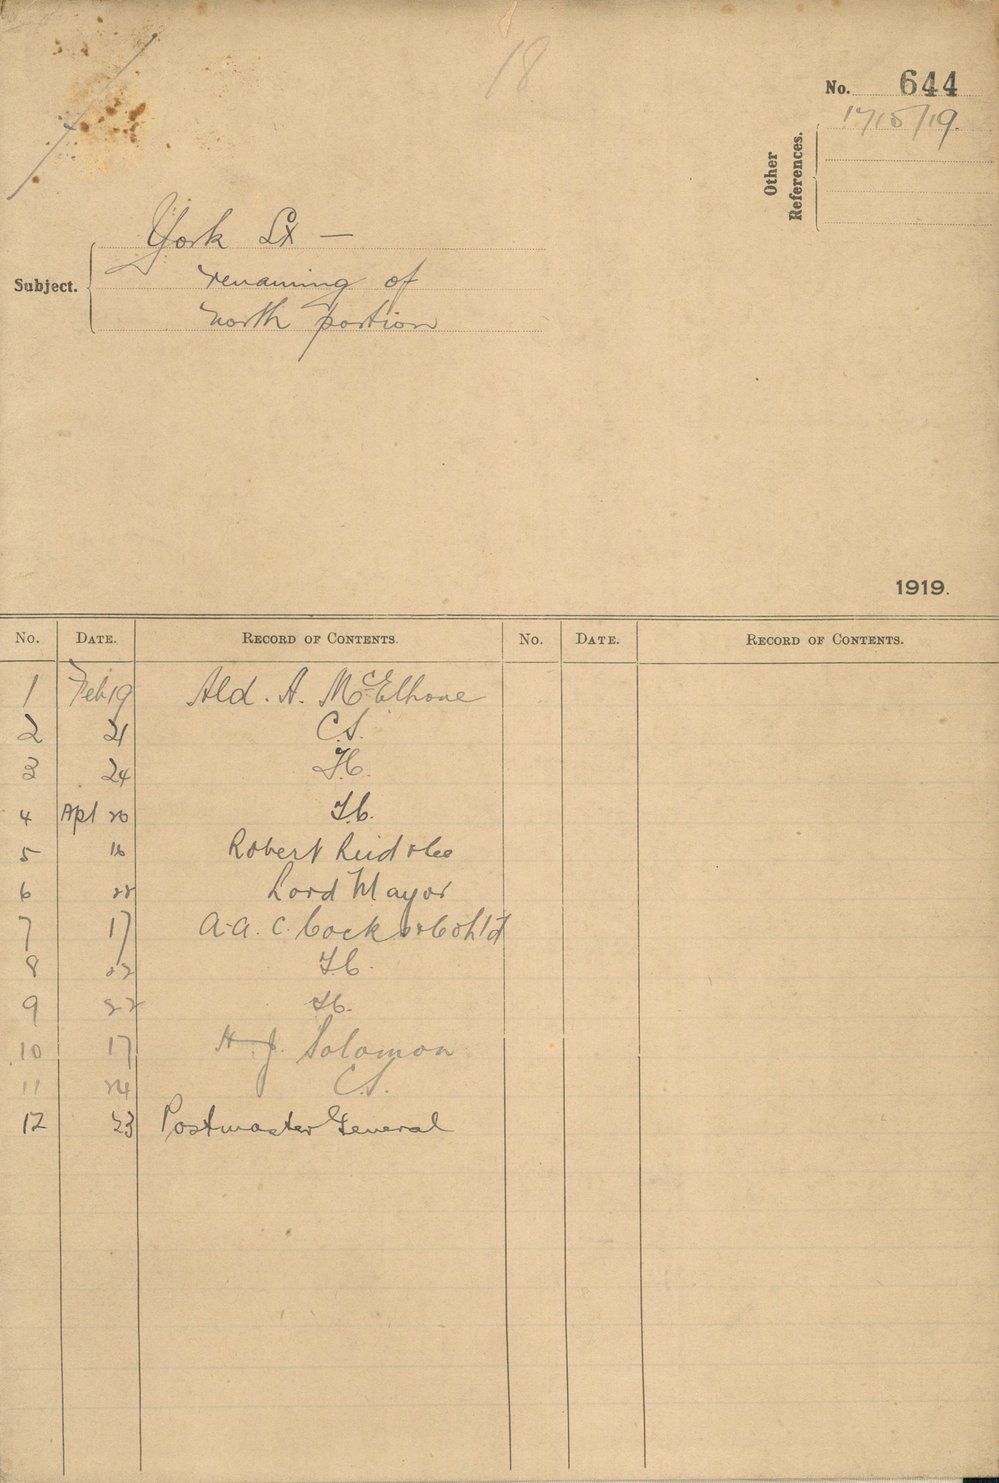 18
No. 644
Other References.
1715/19.
York St —
Subject.
renaming of
north portion
1919.
No. DATE. RECORD OF CONTENTS. No. DATE. RECORD OF CONTENTS.
1 Feb 19 Ald. A. McElhone
2 21 C.S.
3 24 T.C.
4 Apl T.C.
5 16 Robert Reid & Co
6 22 Lord Mayor
7 17 A.A.C. Cocks & Co Ltd
8 22 T.C.
9 22 T.C.
10 17 H.J. Solomon
11 24 C.S.
12 23 Postmaster General